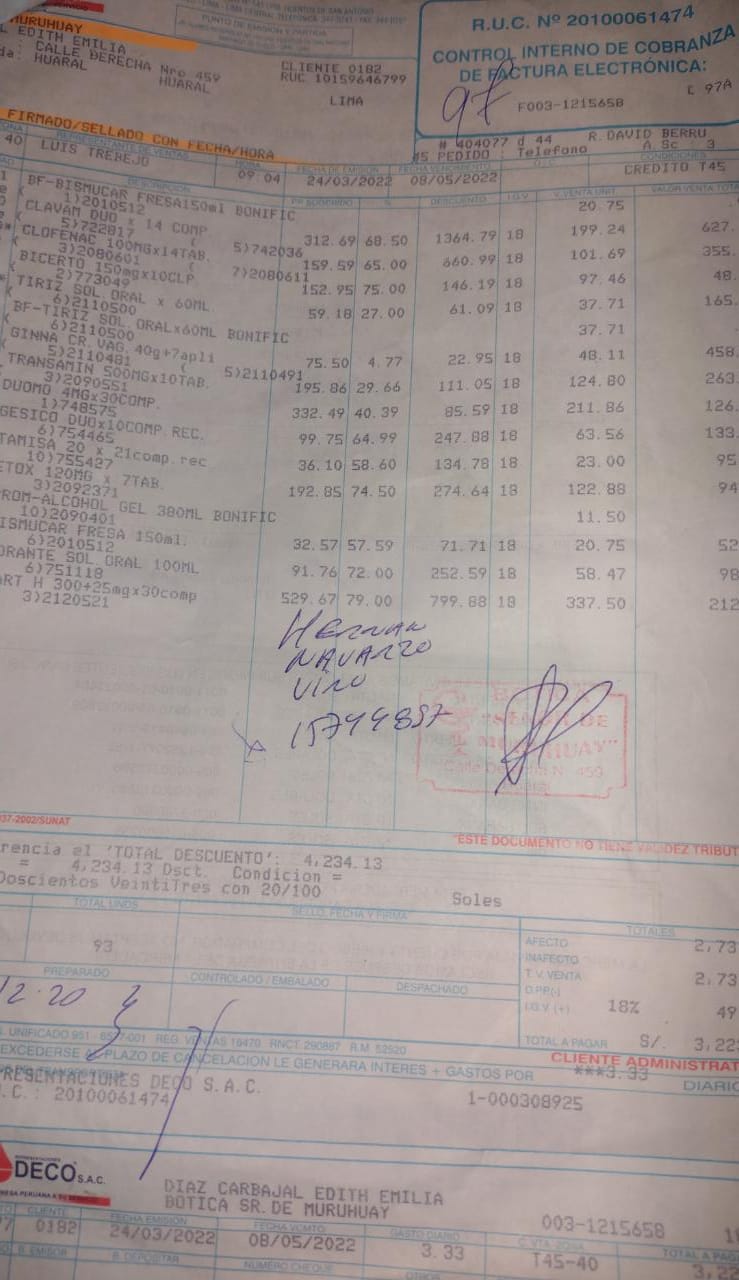 R.U.C. Nº 20100061474
CONTROL INTERNO DE COBRANZA
DE FACTURA ELECTRÓNICA:
97
F003-1215658
97A
PUNTO DE EMISIÓN Y PARTIDA
MURUHUAY
EDITH EMILIA
CALLE DERECHA Nro 459
HUARAL HUARAL
CLIENTE 0182
RUC 10159646799
LIMA
FIRMADO/SELLADO CON FECHA/HORA
# 404077 d 44 R. DAVID BERRU
#S PEDIDO : Telefono A. Sc : 3
REPRESENTANTE DE VENTAS HORA FECHA DE EMISIÓN FECHA VENCIMIENTO CONDICIONES
40 LUIS TREBEJO 09:04 24/03/2022 08/05/2022 CREDITO T45
DESCRIPCIÓN PR SUGERIDO % DESCUENTO I.G.V. V.VENTA UNIT VALOR VENTA TOTAL
BF-BISMUCAR FRESA150ml BONIFIC 20.75
1)2010512
CLAVAM DUO x 14 COMP 312.69 68.50 1364.79 18 199.24 627.
5)722817 ( 5)742036
CLOFENAC 100MGx14TAB. 159.59 65.00 660.99 18 101.69 355.
3)2080601 ( 7)2080611
BICERTO 150mgx10CLP 152.95 75.00 146.19 18 97.46 48.
2)773049
TIRIZ SOL.ORAL x 60ML 59.18 27.00 61.09 18 37.71 165.
6)2110500
BF-TIRIZ SOL.ORALx60ML BONIFIC 37.71
6)2110500
GINNA CR.VAG.40g+7apli 75.50 4.77 22.95 18 48.11 458.
5)2110481 ( 5)2110491
TRANSAMIN 500MGx10TAB. 195.86 29.66 111.05 18 124.80 263.
3)2090551
DUOMO 4MGx30COMP. 332.49 40.39 85.59 18 211.86 126.
1)748575
GESICO DUOx10COMP.REC. 99.75 64.99 247.88 18 63.56 133.
6)754465
TAMISA 20 x 21comp.rec 36.10 58.60 134.78 18 23.00 95
10)755427
ETOX 120MG x 7TAB. 192.85 74.50 274.64 18 122.88 94
3)2092371
ROM-ALCOHOL GEL 380ML BONIFIC 11.50
10)2090401
ISMUCAR FRESA 150ml. 32.57 57.59 71.71 18 20.75 52
6)2010512
ORANTE SOL.ORAL 100ML 91.76 72.00 252.59 18 58.47 98
6)751118
ART H 300+25mgx30comp 529.67 79.00 799.88 18 337.50 212
3)2120521
HERNAN
NAVARRO
VINO
15744857
"SEÑOR DE
MURUHUAY"
Nº 459
037-2002/SUNAT
"ESTE DOCUMENTO NO TIENE VALIDEZ TRIBUT
rencia el 'TOTAL DESCUENTO': 4,234.13
= 4,234.13 Dsct. Condicion =
Doscientos VeintiTres con 20/100 Soles
TOTAL UNDS SELLO, FECHA Y FIRMA TOTALES
93
AFECTO 2,73
INAFECTO
T.V. VENTA 2,73
D.PP(-)
I.G.V (+) 18% 49
TOTAL A PAGAR S/. 3,22
PREPARADO CONTROLADO / EMBALADO DESPACHADO
12.20
UNIFICADO 951 REG. VENTAS 16470 RNCT 290887 R.M 52920
CLIENTE ADMINISTRAT
EXCEDERSE PLAZO DE CANCELACION LE GENERARA INTERES + GASTOS POR ***3.33 DIARIO
PRESENTACIONES DECO S.A.C.
.C.: 20100061474
1-000308925
DECO S.A.C.
DIAZ CARBAJAL EDITH EMILIA
BOTICA SR. DE MURUHUAY
003-1215658
CLIENTE FECHA EMISIÓN FECHA VCMTO GASTO DIARIO C.VTA ZONA TOTAL A PAG
0182 24/03/2022 08/05/2022 3.33 T45-40 3,22
B. EMISOR B. DEPOSITAR NUMERO CHEQUE OTROS